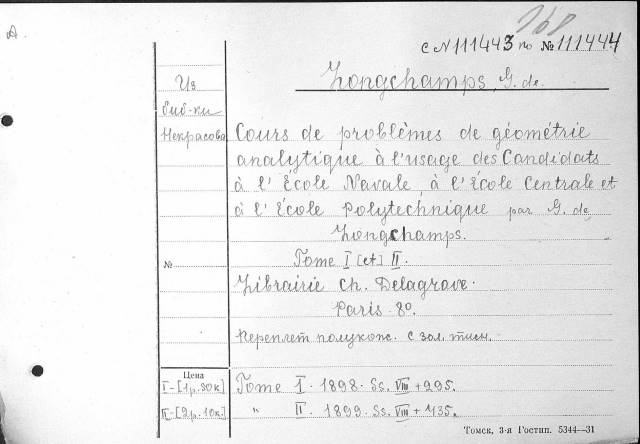 А.
168
с №111443 по №111444
Longchamps, G. de.
Из
биб-ки
Некрасова
Cours de problèmes de géométrie
analytique à l'usage des Candidats
à l' École Navale, à l'École Centrale et
à l' École Polytechnique par G. de
Longchamps.
Tome I [et] II.
№
Librairie Ch. Delagrave.
Paris. 8º.
Переплет полукож. с зол. тисн.
Цена
I-[1р.30к] Tome I. 1898. Ss. VIII + 295.
II-[2р.10к.] " II. 1899. Ss. VIII + 435.
Томск, 3-я Гостип. 5344—31